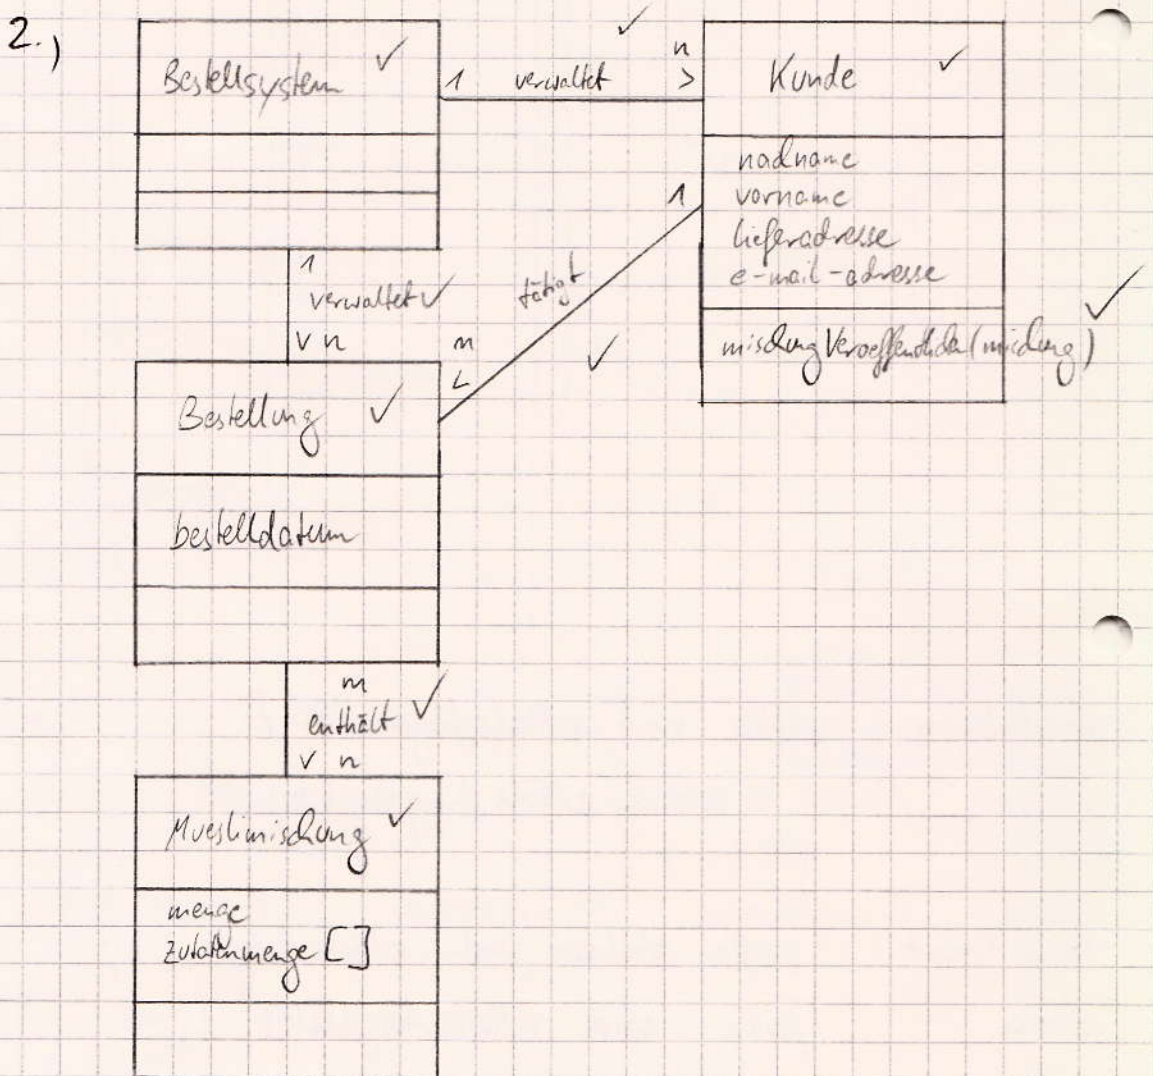 2.)
Bestellsystem
1 verwaltet n >
Kunde
nachname
vorname
lieferadresse
e-mail-adresse
mischungVeroeffentlichen(mischung)
1
verwaltet
v n
1
tätigt
n
<
Bestellung
bestelldatum
m
enthält
v n
Mueslimischung
menge
zutatenmenge []